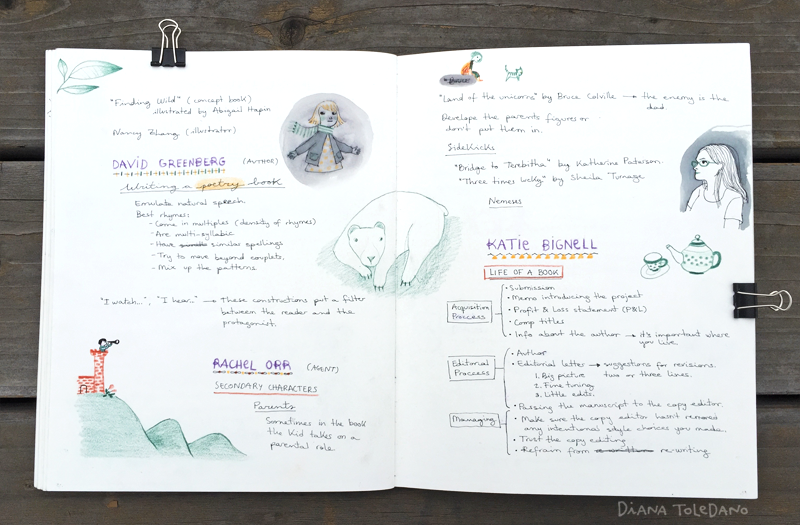 "Finding Wild" (concept book)
illustrated by Abigail Hapin
Nancy Zhang (illustrator)
DAVID GREENBERG (AUTHOR)
Writing a poetry book
Emulate natural speech.
Best rhymes:
- Come in multiples (density of rhymes)
- Are multi-syllabic
- Have similar spellings
- Try to move beyond couplets,
- Mix up the patterns.
"I watch...", "I hear.. → These constructions put a filter
between the reader and the
protagonist.
RACHEL ORR (AGENT)
SECONDARY CHARACTERS
Parents
Sometimes in the book
the kid takes on a
parental role.
"Land of the unicorns" by Bruce Colville → the enemy is the
dad.
Develope the parents figures or
don't put them in.
SIDEKICKS
"Bridge to Terebithia" by Katherine Paterson.
"Three times lucky" by Sheila Turnage
Nemesis
KATIE BIGNELL
LIFE OF A BOOK
Acquisition
Proccess
• Submission
• Memo introducing the project
• Profit & Loss statement (P&L)
• Comp titles
• Info about the author → it's important where
you live.
Editorial
Proccess
• Author
• Editorial letter → suggestions for revisions.
1. Big picture two or three lines.
2. Fine tuning
3. Little edits.
• Passing the manuscript to the copy editor.
Managing
• Make sure the copy editor hasn't removed
any intentional style choices you made.
• Trust the copy editing
• Refrain from re-writing.
DIANA TOLEDANO